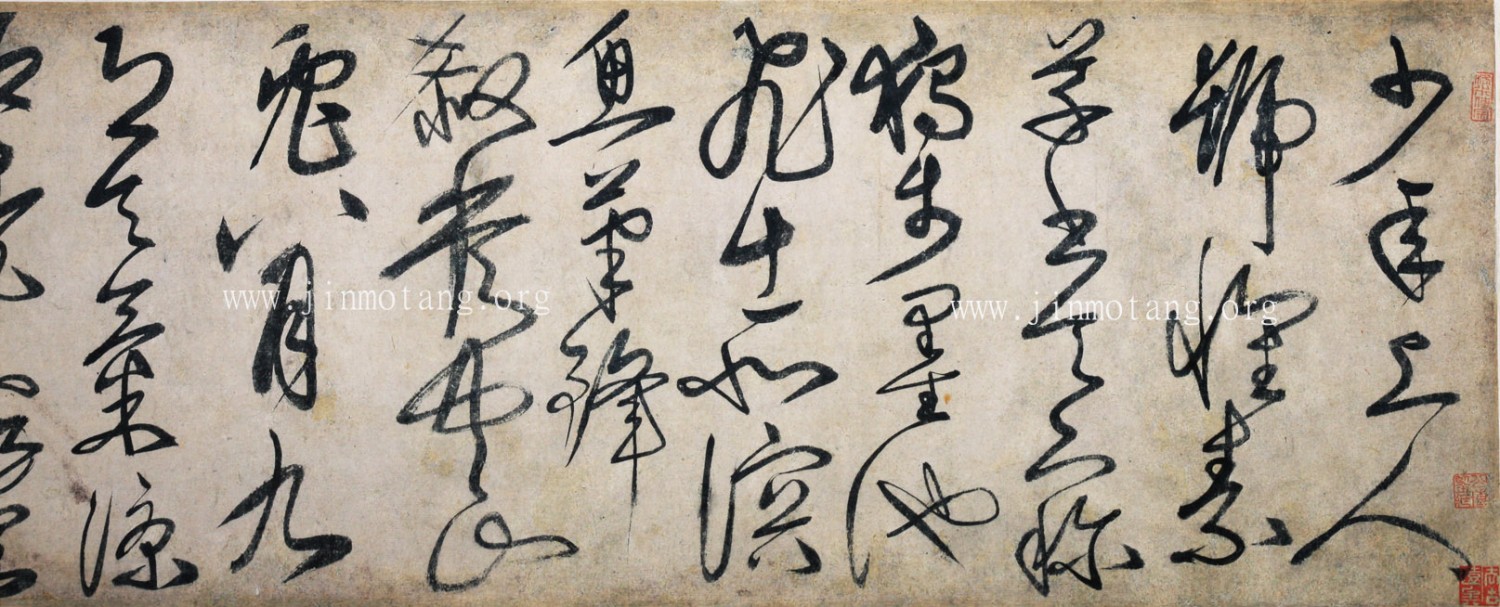 少年上人
號懷素
草書天下稱
獨步墨池
飛出北溟
魚筆鋒
殺盡中山
兔八月九
月天氣涼
www.jinmotang.org
www.jinmotang.org